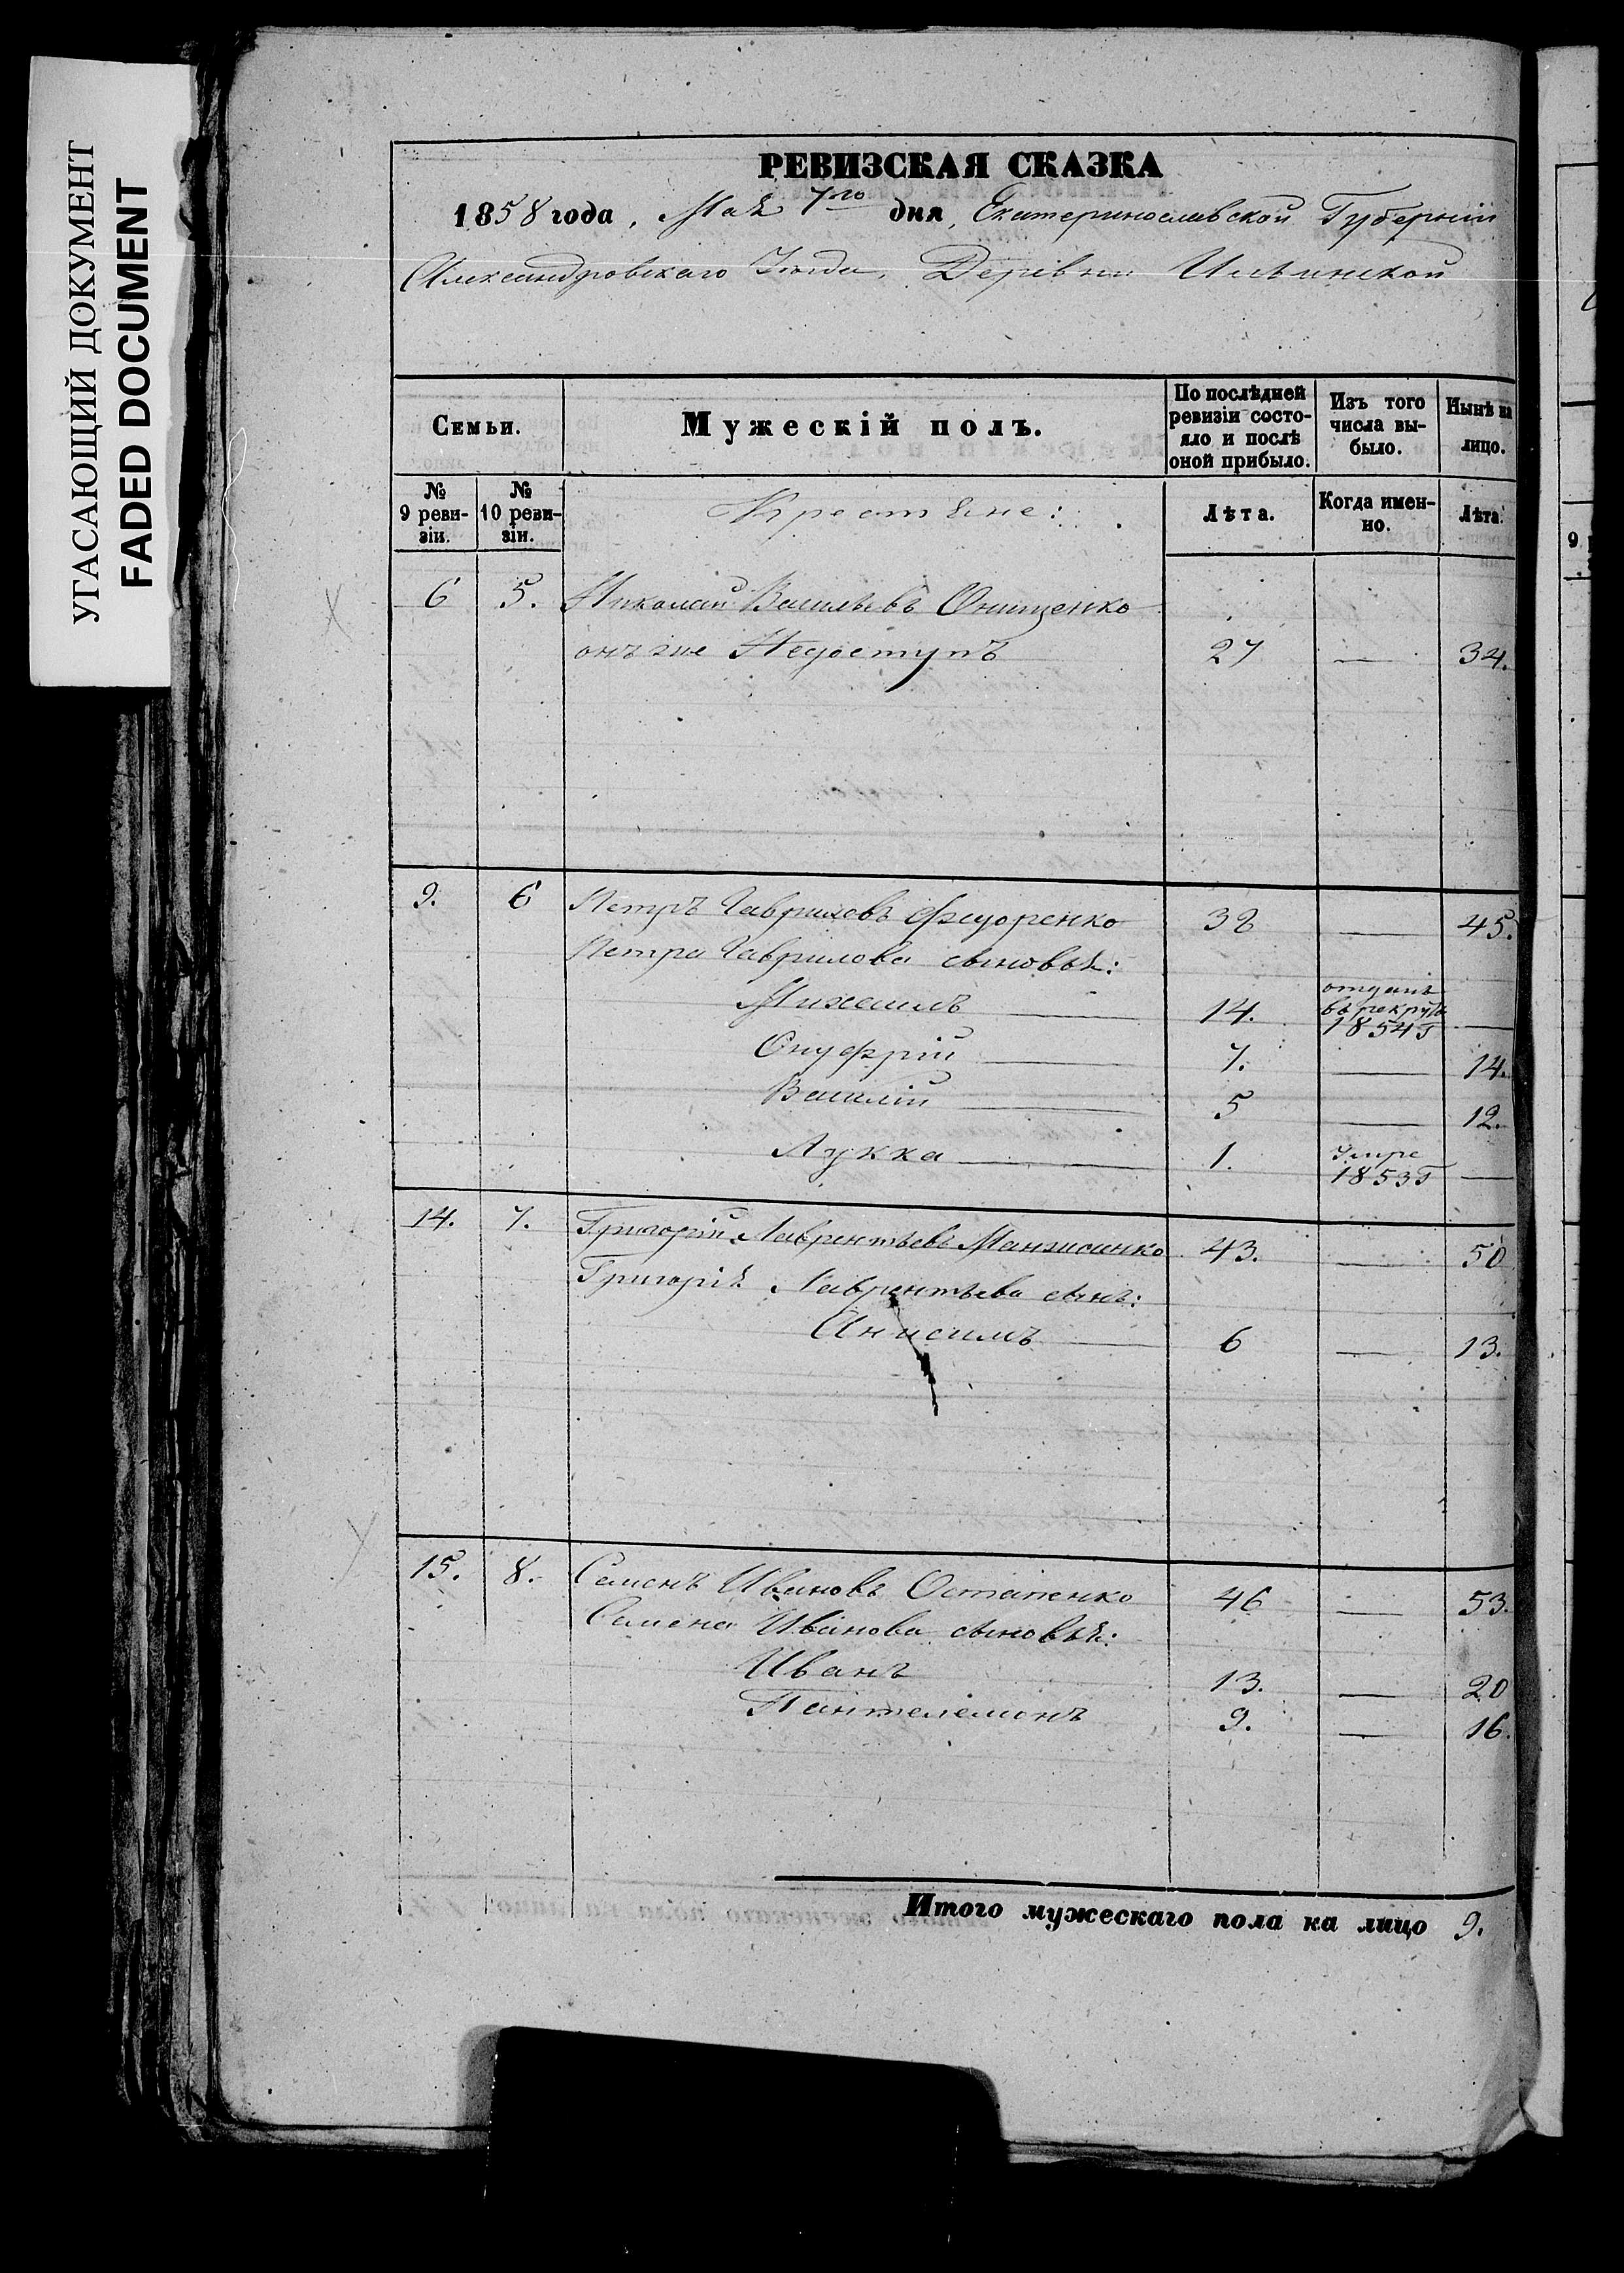 УГАСАЮЩИЙ ДОКУМЕНТ
FADED DOCUMENT
РЕВИЗСКАЯ СКАЗКА
1858 года, Мая 7го дня, Екатеринославской Губерніи
Александровскаго Уѣзда, Деревни Ильинской
Семьи.
Мужескій полъ.
По послѣдней ревизіи состояло и послѣ оной прибыло.
Изъ того числа выбыло.
Нынѣ на лицо.
№ 9 ревизіи.
№ 10 ревизіи.
Крестяне:
Лѣта.
Когда именно.
Лѣта.
6 5. Николай Васильевъ Онищенко
онъ же Недоступъ 27 — 34.
9. 6 Петръ Гавриловъ Федоренко 38 — 45.
Петра Гаврилова сыновья:
Михаилъ — 14. отданъ въ рекруты 1854 г —
Онуфрій — 7. — 14.
Василій — 5 — 12.
Лукка — 1. Умре 1853 г —
14. 7. Григорій Лаврентьевъ 43. — 50
Григорія Лаврентьева сынъ:
Анисимъ — 6 — 13.
15. 8. Семенъ Ивановъ Остапенко 46 — 53.
Семена Иванова сыновья:
Иванъ 13. — 20
Пантелемонъ 9. — 16.
Итого мужескаго пола на лицо 9.
9